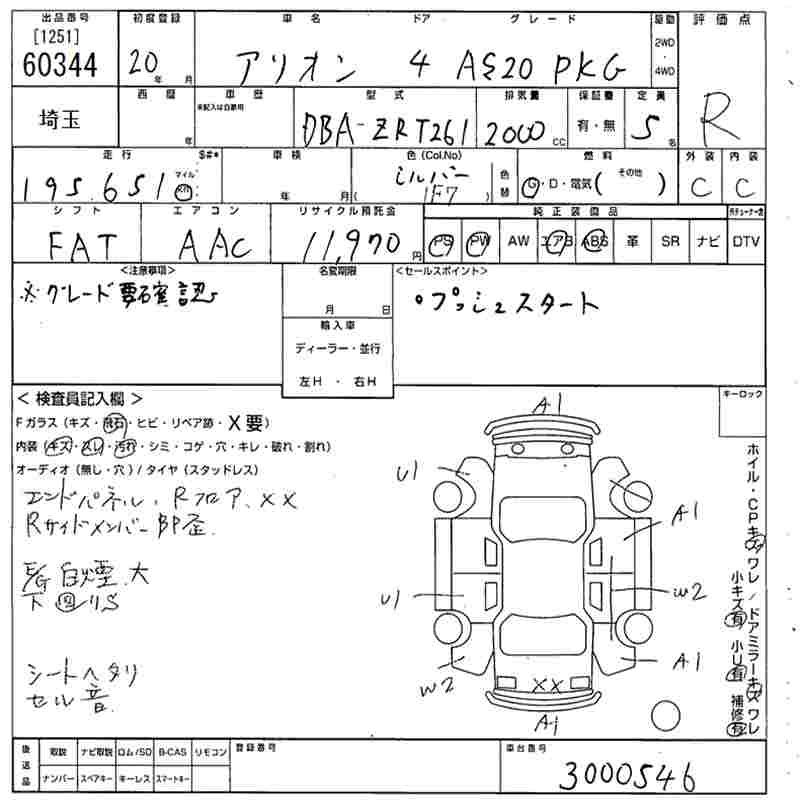 出品番号 初度登録 車名 ドア グレード 駆動 評価点
[1251] 2WD
60344 20年 月 アリオン 4 AS20 PKG ・ 4WD R
西暦 車歴 型式 排気量 保証書 定員
未記入は自家用
埼玉 年 DBA-ZRT261 2000CC 有・無 5名
走行 $#* 車検 色(Col.No) 燃料 外装 内装
マイル シルバー 色替 その他
195,651 km 年 月 ( 1F7 ) G・D・電気( ) C C
シフト エアコン リサイクル預託金 純正装備品
FAT AAC 11,970円 PS PW AW エアB ABS 革 SR ナビ DTV
<注意事項> 名変期限 <セールスポイント>
※グレード要確認 月 日 ・プッシュスタート
輸入車
ディーラー・並行
左H ・ 右H
キーロック
<検査員記入欄>
Fガラス(キズ・飛石・ヒビ・リペア跡・X要)
内装(キズ・スレ・汚れ・シミ・コゲ・穴・キレ・破れ・割れ)
オーディオ(無し・穴)/タイヤ(スタッドレス)
エンドパネル、Rフロア、XX
RサイドメンバーBP歪
E/G白煙 大
下回りS
シートヘタリ
セル音
A1
U1
A1
U1
W2
W2
A1
XX
A1
ホイル・CPキズワレ/ドアミラーキズワレ
小キズ有 小U有 補修有
後送品 取説 ナビ取説 ロム/SD B-CAS リモコン 登録番号 車台番号
ナンバー スペアキー キーレス スマートキー 3000546